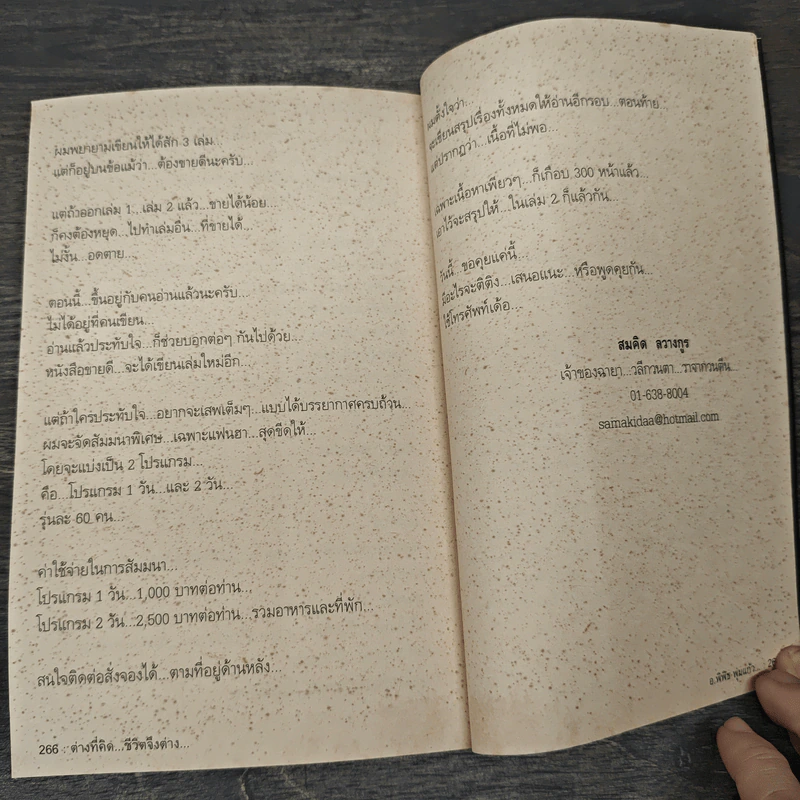 ผมพยายามเขียนให้ได้สัก 3 เล่ม...
แต่ก็อยู่บนข้อแม้ว่า...ต้องขายดีนะครับ...
แต่ถ้าออกเล่ม 1...เล่ม 2 แล้ว...ขายได้น้อย...
ก็คงต้องหยุด...ไปทำเล่มอื่น...ที่ขายได้...
ไม่งั้น...อดตาย...
ตอนนี้...ขึ้นอยู่กับคนอ่านแล้วนะครับ...
ไม่ได้อยู่ที่คนเขียน...
อ่านแล้วประทับใจ...ก็ช่วยบอกต่อๆ กันไปด้วย...
หนังสือขายดี...จะได้เขียนเล่มใหม่อีก...
แต่ถ้าใครประทับใจ...อยากจะเสพเต็มๆ...แบบได้บรรยากาศครบถ้วน...
ผมจะจัดสัมมนาพิเศษ...เฉพาะแฟนฮา...สุดขีดให้...
โดยจะแบ่งเป็น 2 โปรแกรม...
คือ...โปรแกรม 1 วัน...และ 2 วัน...
รุ่นละ 60 คน...
ค่าใช้จ่ายในการสัมมนา...
โปรแกรม 1 วัน...1,000 บาทต่อท่าน...
โปรแกรม 2 วัน...2,500 บาทต่อท่าน...รวมอาหารและที่พัก...
สนใจติดต่อสั่งจองได้...ตามที่อยู่ด้านหลัง...
266 : ต่างที่คิด...ชีวิตจึงต่าง...
ผมตั้งใจว่า...
จะเขียนสรุปเรื่องทั้งหมดให้อ่านอีกรอบ...ตอนท้าย
แต่ปรากฏว่า...เนื้อที่ไม่พอ...
เฉพาะเนื้อหาเพียวๆ...ก็เกือบ 300 หน้าแล้ว...
เอาไว้จะสรุปให้...ในเล่ม 2 ก็แล้วกัน...
วันนี้...ขอคุยแค่นี้...
มีอะไรจะติติง...เสนอแนะ...หรือพูดคุยกัน...
ใช้โทรศัพท์เด้อ...
สมคิด ลวางกูร
เจ้าของฉายา...วลีกวนตา...วาจากวนตีน...
01-638-8004
samakidaa@hotmail.com
อ.พิพิธ พุ่มแก้ว...